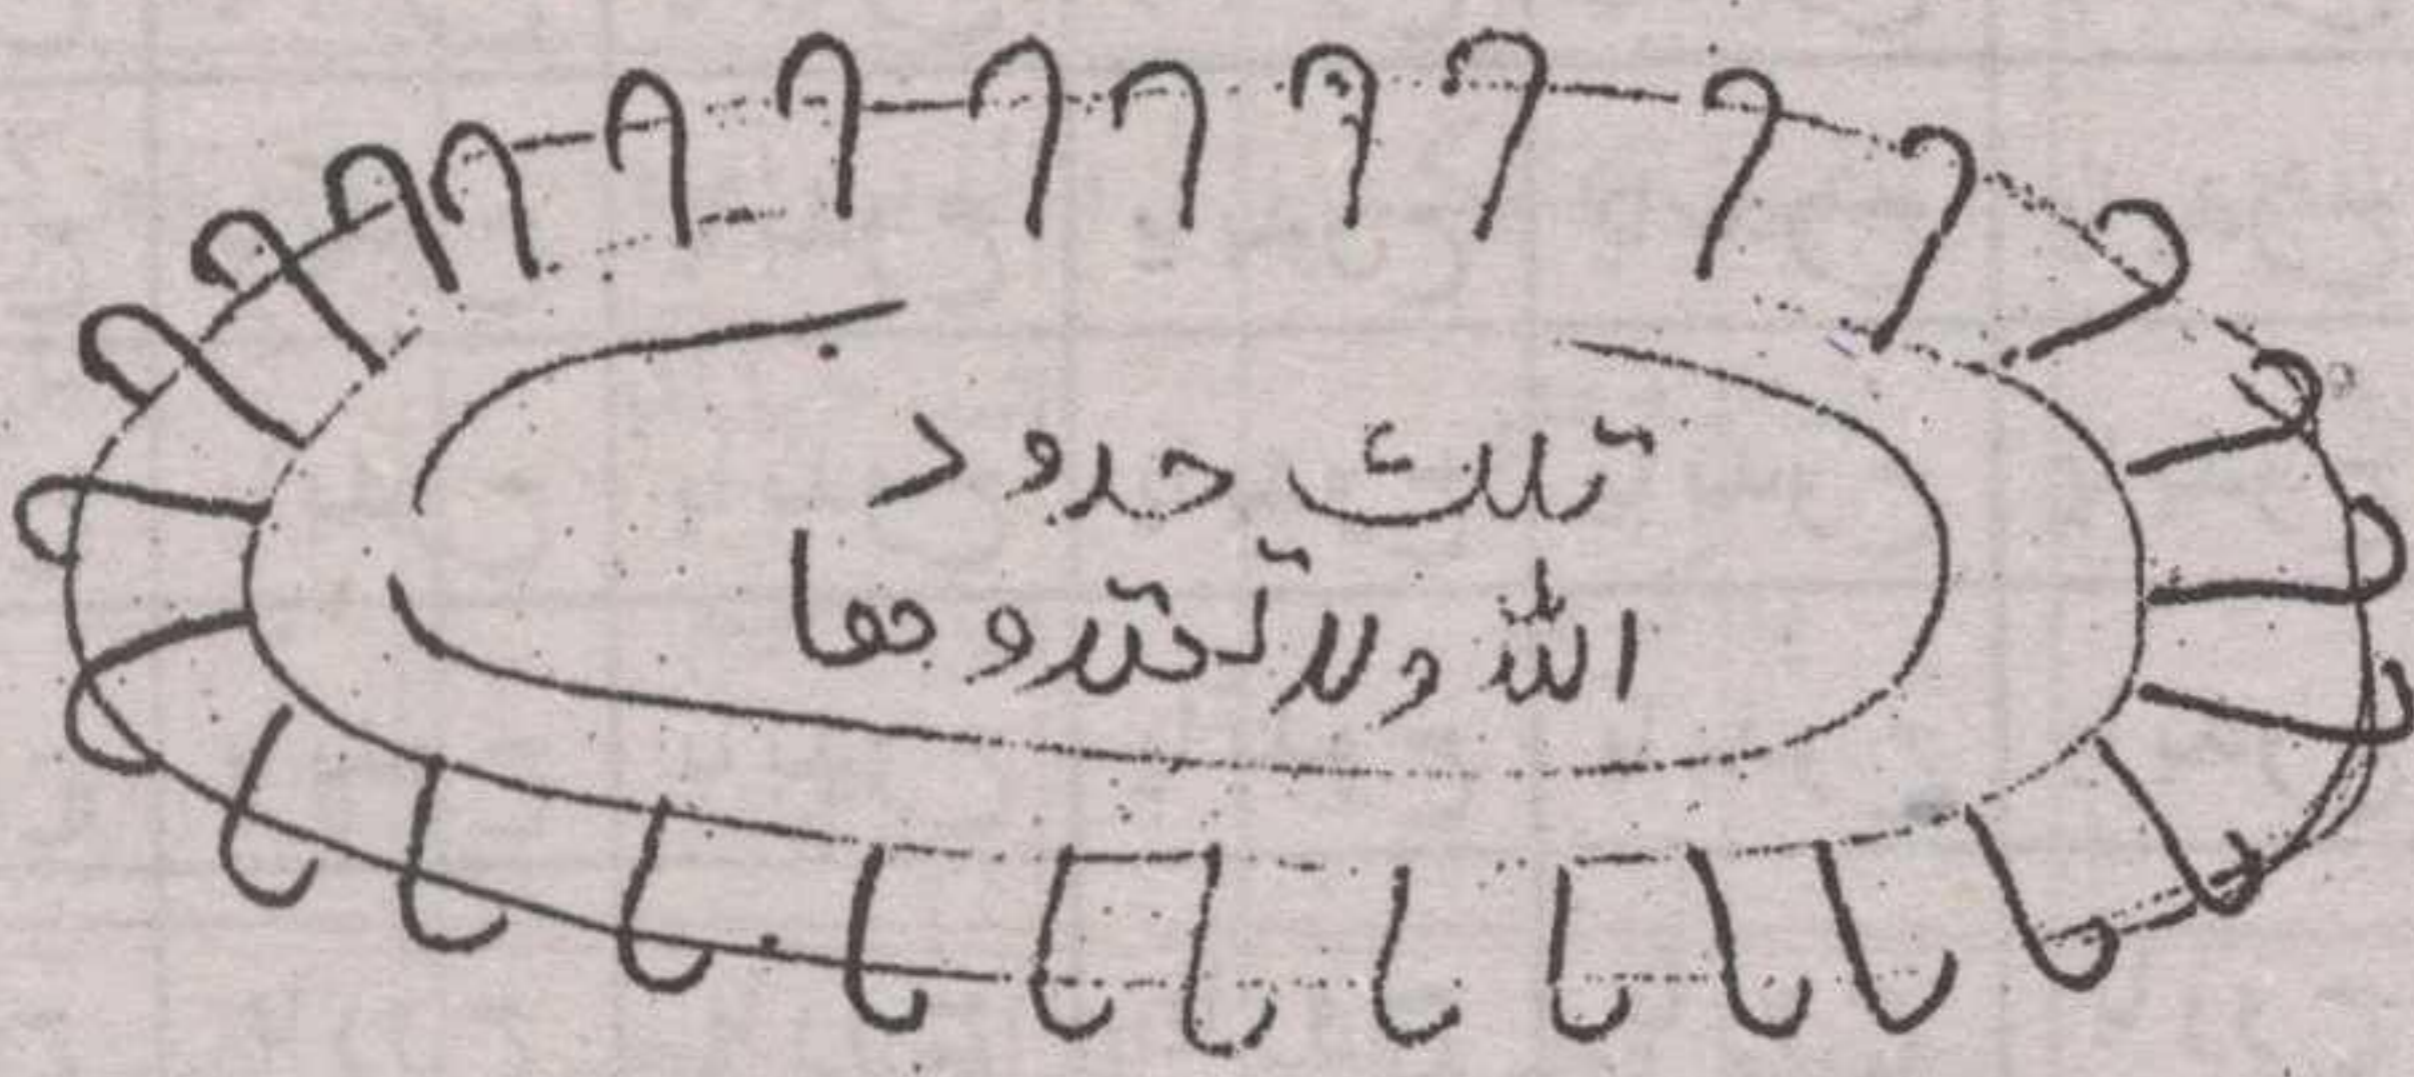 تلك حدود
الله ولا تعتدوها